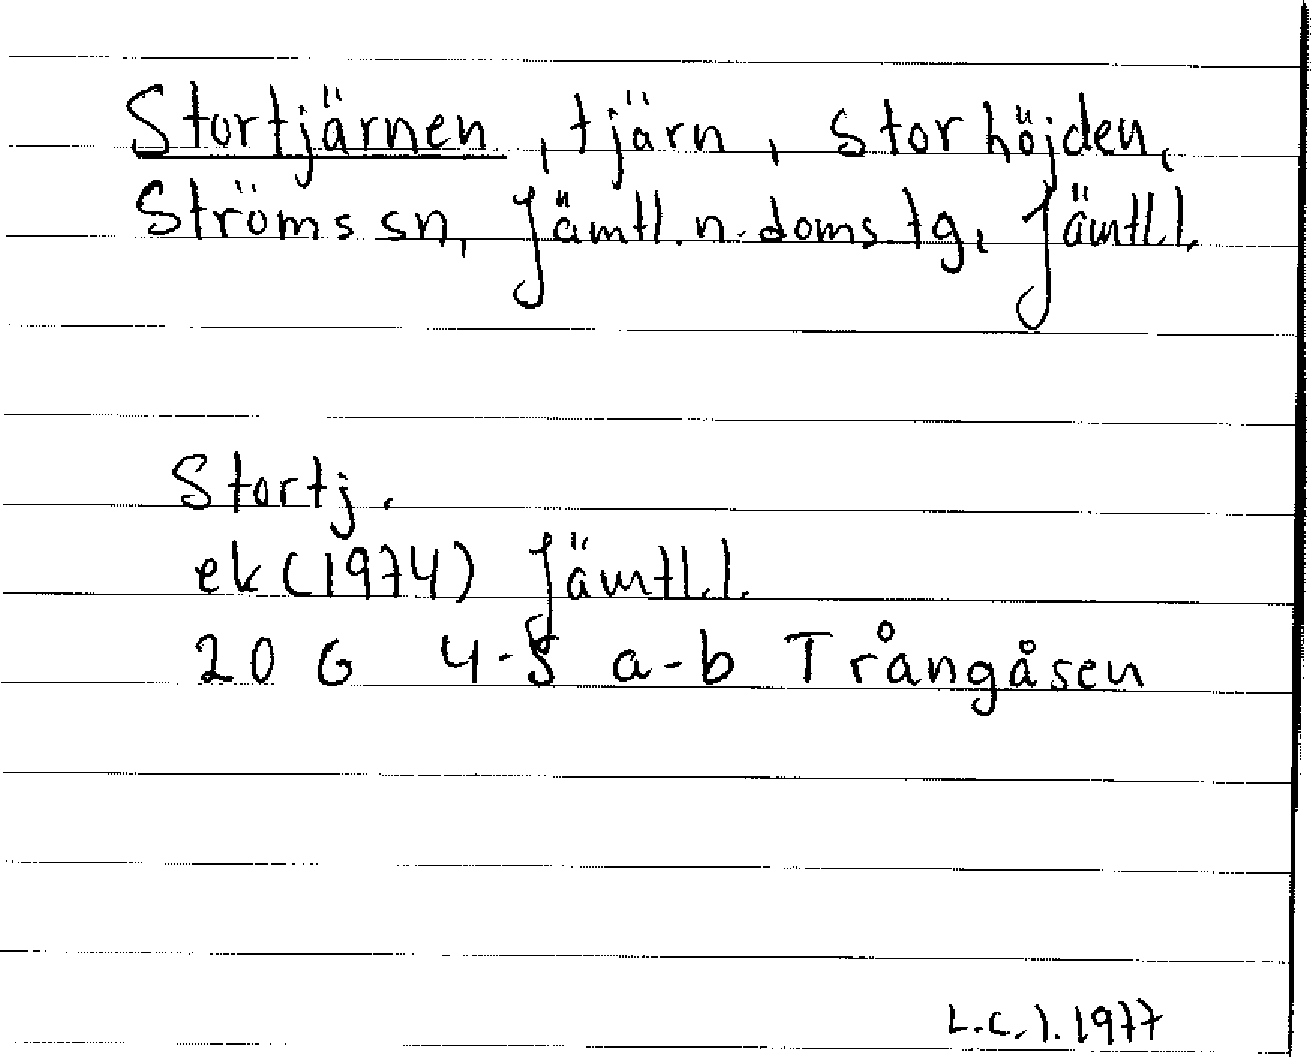 Stortjärnen, tjärn, Storhöjden,
Ströms sn, Jämtl. n. doms tg, Jämtl.l.
Stortj.
ek (1974) Jämtl.l.
20 G 4-5 a-b Trångåsen
L.C.J. 1977